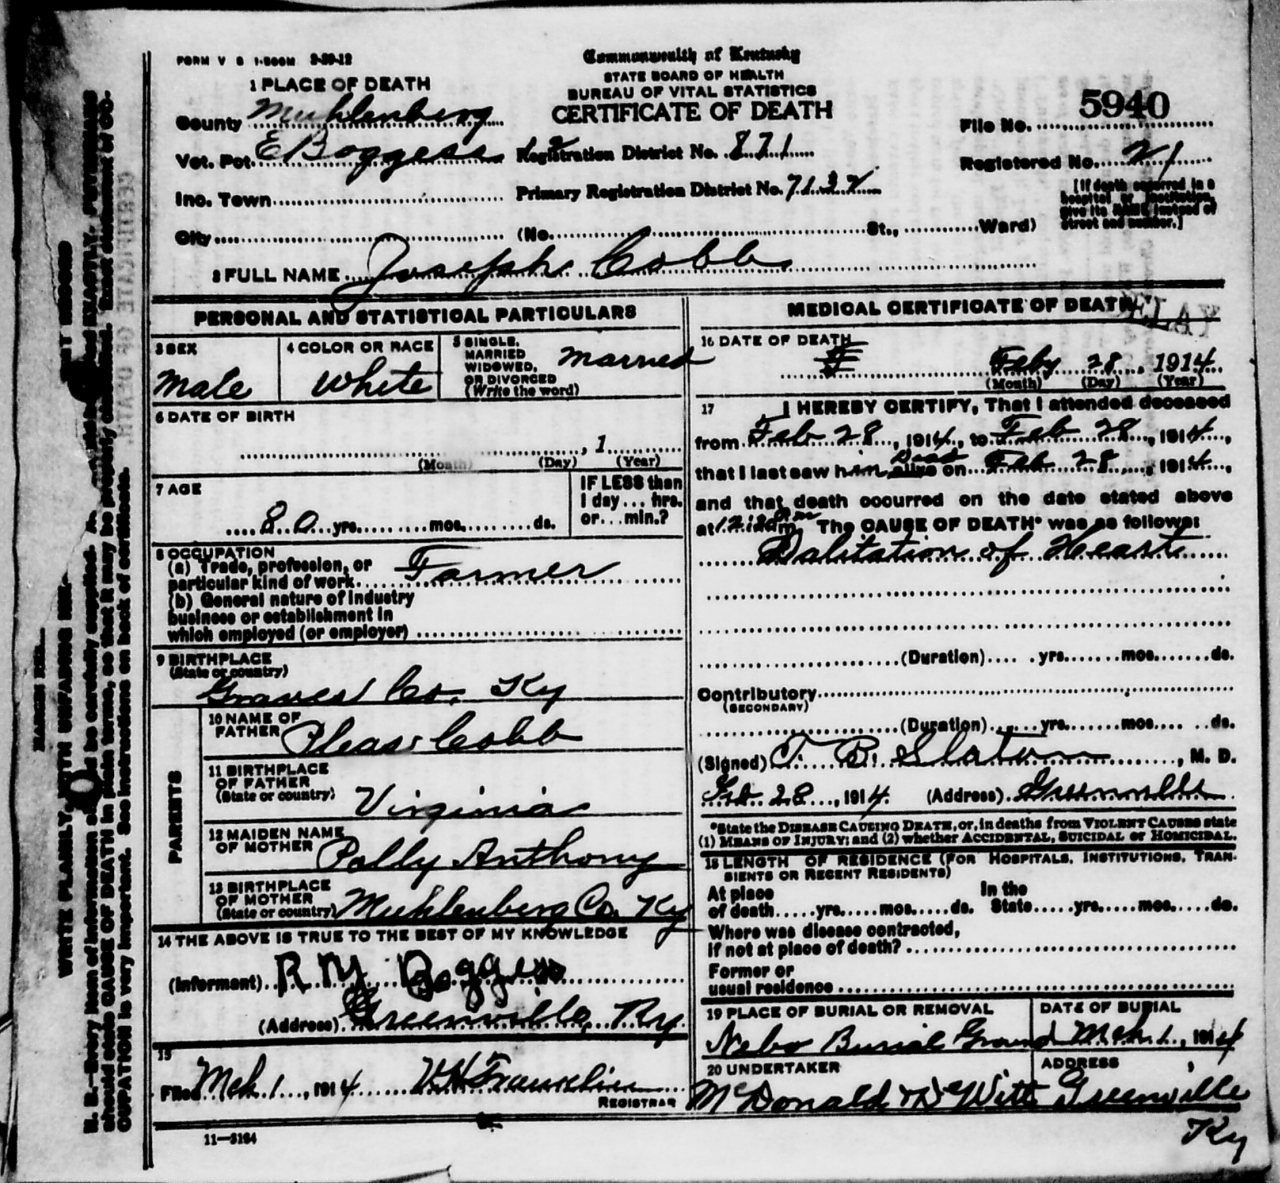 FORM V S 1-500M 2-20-12
Commonwealth of Kentucky
STATE BOARD OF HEALTH
BUREAU OF VITAL STATISTICS
CERTIFICATE OF DEATH
1 PLACE OF DEATH
County Muhlenberg
Vot. Pct. E Boggess
Inc. Town
City (No. St., Ward)
Registration District No. 871
Primary Registration District No. 7132
File No. 5940
Registered No. 21
[If death occurred in a
hospital or institution,
give its NAME instead of
street and number.]
2 FULL NAME Joseph Cobb
PERSONAL AND STATISTICAL PARTICULARS
3 SEX
Male
4 COLOR OR RACE
White
5 SINGLE,
MARRIED
WIDOWED,
OR DIVORCED
(Write the word)
Married
6 DATE OF BIRTH
, 1
(Month) (Day) (Year)
7 AGE
80 yrs. mos. ds.
IF LESS than
1 day... hrs.
or... min.?
8 OCCUPATION
(a) Trade, profession, or
particular kind of work Farmer
(b) General nature of industry
business or establishment in
which employed (or employer)
9 BIRTHPLACE
(State or country)
Graves Co. Ky
PARENTS
10 NAME OF
FATHER Pleas Cobb
11 BIRTHPLACE
OF FATHER
(State or country) Virginia
12 MAIDEN NAME
OF MOTHER Polly Anthony
13 BIRTHPLACE
OF MOTHER
(State or country) Muhlenberg Co. Ky
14 THE ABOVE IS TRUE TO THE BEST OF MY KNOWLEDGE
(Informant) R M Boggess
(Address) Greenville, Ky
15
Filed Mch 1, 1914
REGISTRAR
11—3184
MEDICAL CERTIFICATE OF DEATH
16 DATE OF DEATH
Feby 28, 1914
(Month) (Day) (Year)
17 I HEREBY CERTIFY, That I attended deceased
from Feb 28, 1914, to Feb 28, 1914,
that I last saw him alive Dead on Feb 28, 1914,
and that death occurred on the date stated above
at m. The CAUSE OF DEATH* was as follows:
Dalitation of Heart
(Duration) yrs. mos. ds.
Contributory
(SECONDARY)
(Duration) yrs. mos. ds.
(Signed) T. B. Slaton, M. D.
28, 1914. (Address) Greenville
*State the DISEASE CAUSING DEATH, or, in deaths from VIOLENT CAUSES state
(1) MEANS OF INJURY; and (2) whether ACCIDENTAL, SUICIDAL or HOMICIDAL.
18 LENGTH OF RESIDENCE (FOR HOSPITALS, INSTITUTIONS, TRAN-
SIENTS OR RECENT RESIDENTS)
At place
of death yrs. mos. ds.
In the
State yrs. mos. ds.
Where was disease contracted,
if not at place of death?
Former or
usual residence
19 PLACE OF BURIAL OR REMOVAL
Nebo Burial Ground
DATE OF BURIAL
Mch 1, 1914
20 UNDERTAKER
McDonald & DeWitt
ADDRESS
Greenville
Ky